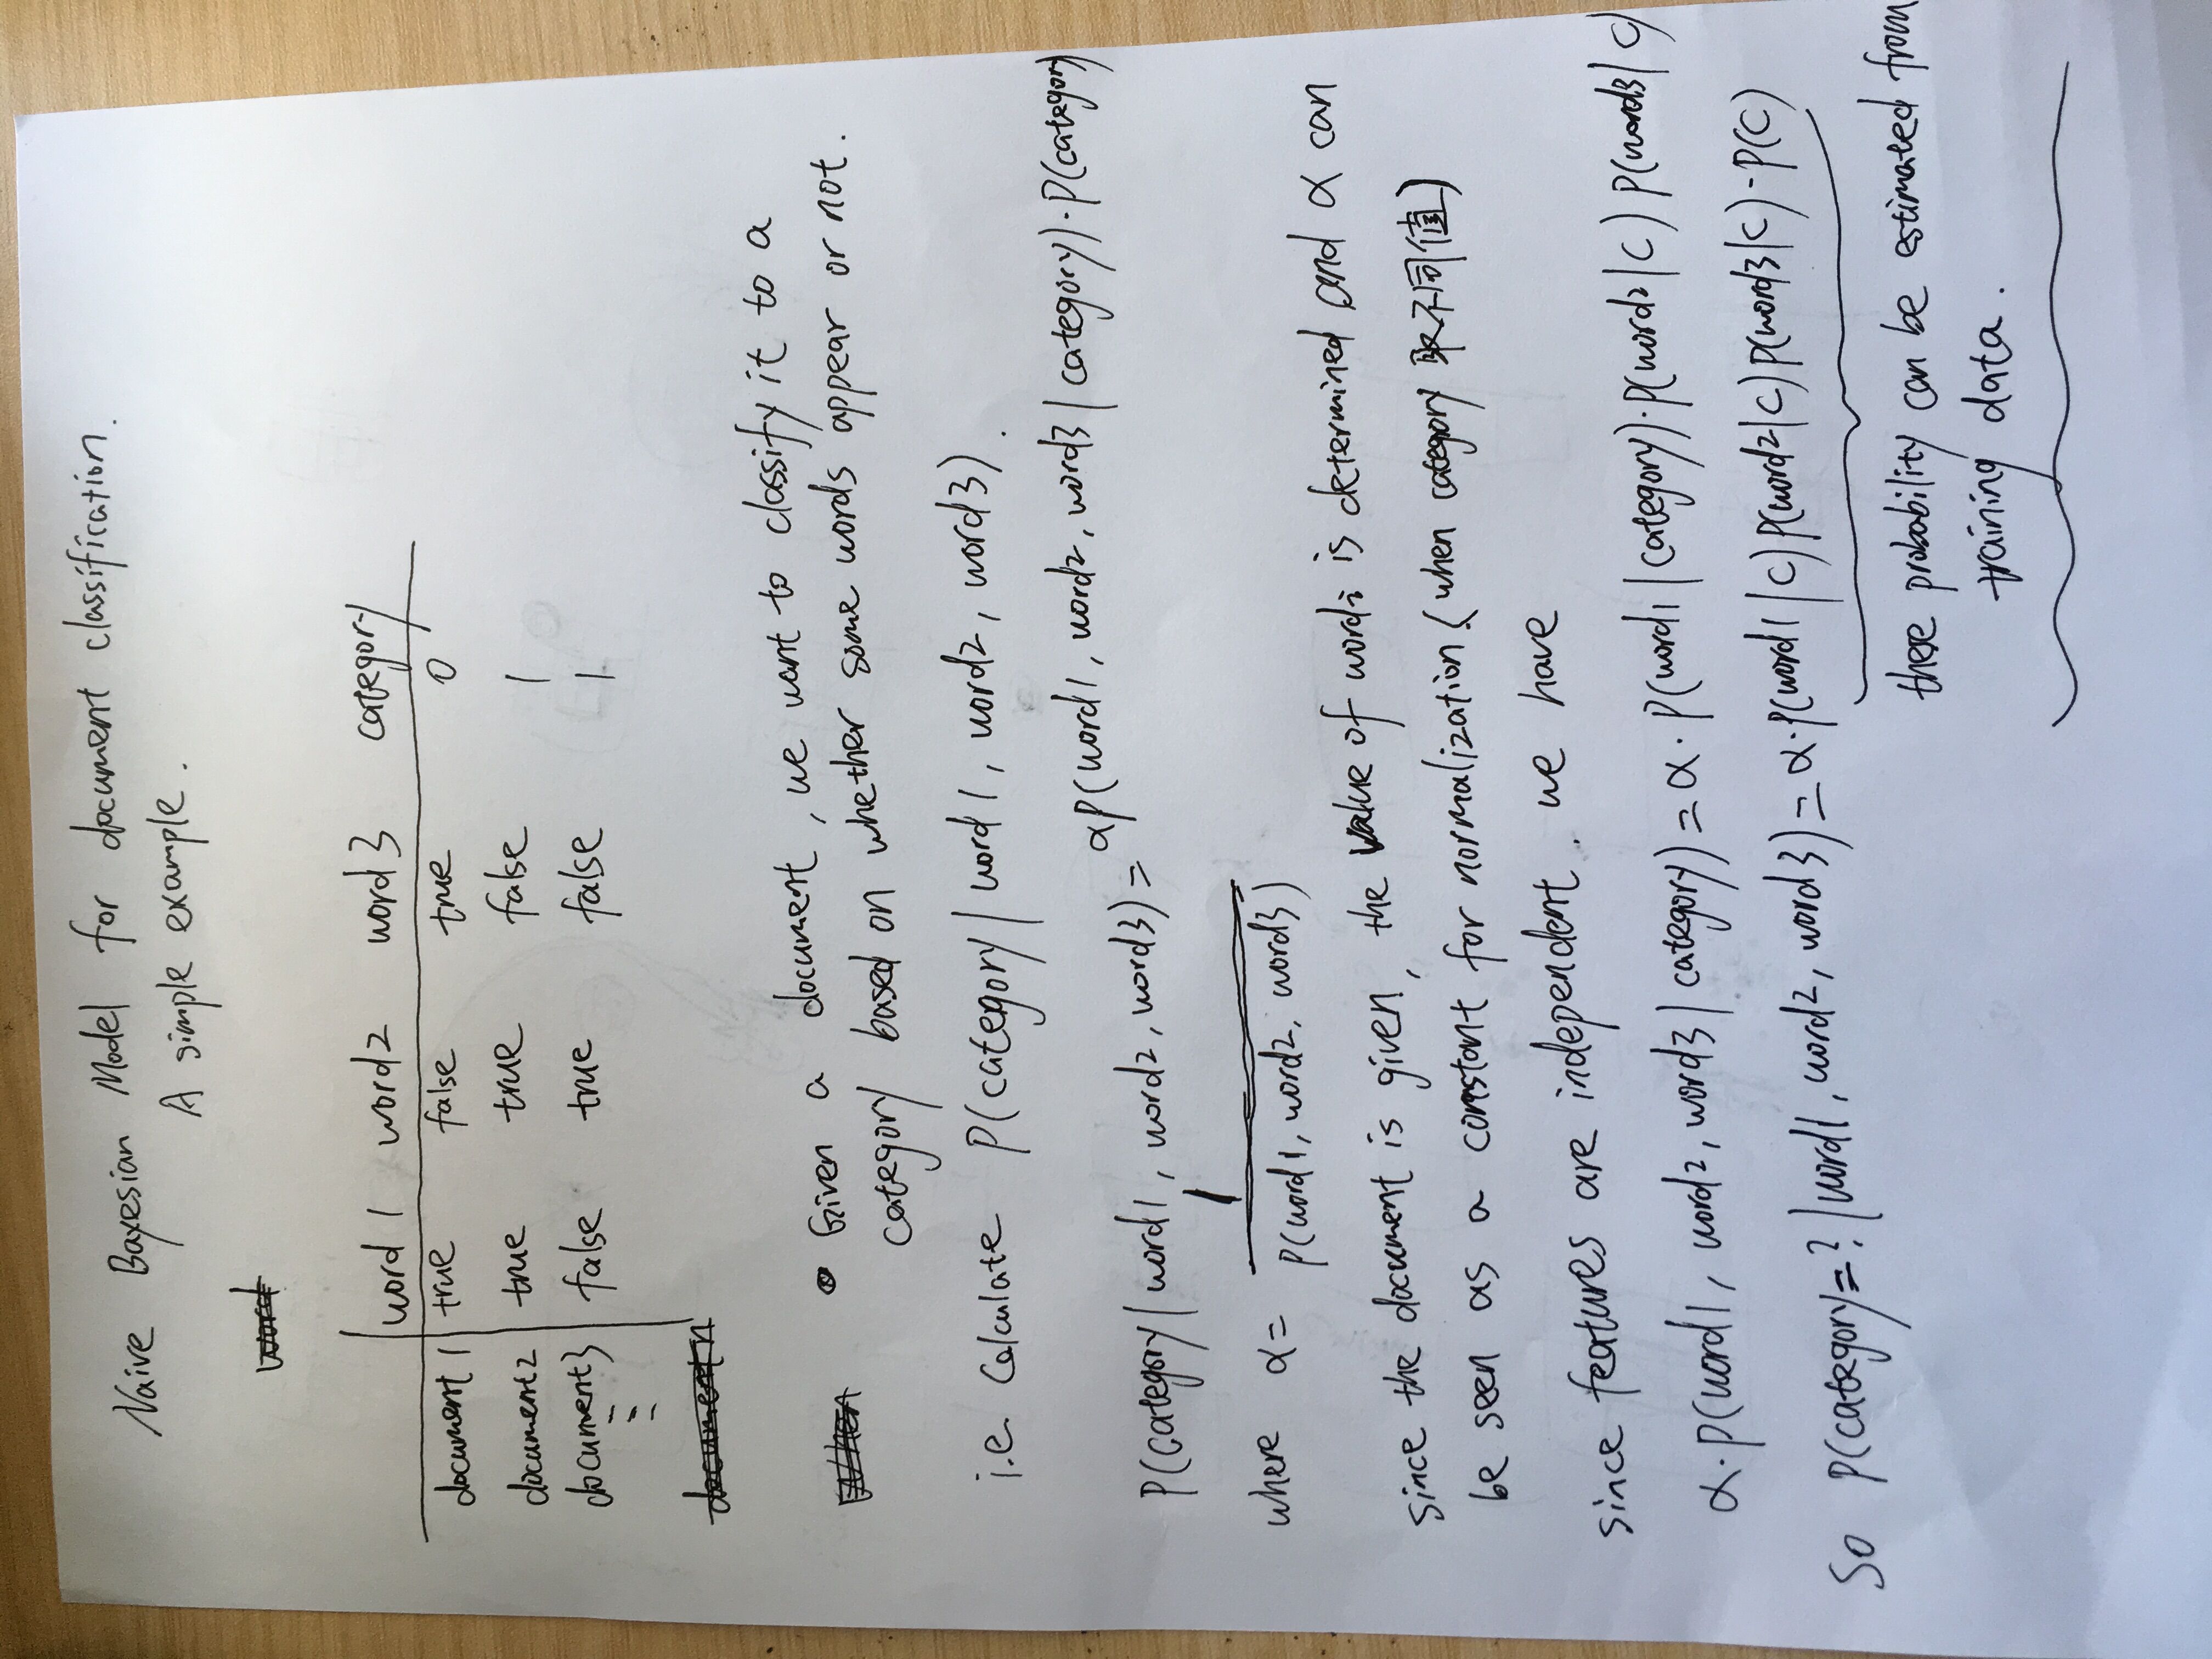 Naive Bayesian Model for document classification.
A simple example.
word
word 1 word2 word 3 category
document 1 true false true 0
document2 true true false 1
document3 false true false 1
document n
When • Given a document, we want to classify it to a
category based on whether some words appear or not.
i.e. Calculate P(category | word 1, word2, word3).
P(category | word1, word2, word3) = αP(word1, word2, word3 | category)·P(category)
where α = 1 / P(word1, word2, word3)
since the document is given, the value of word i is determined and α can
be seen as a constant for normalization (when category 取不同值)
since features are independent. we have
α·P(word1, word2, word3 | category) = α·P(word1 | category)·P(word2 | C) P(word3 | C)
So P(category=? | word1, word2, word3) = α·P(word1 | C) P(word2 | C) P(word3 | C)·P(C)
these probability can be estimated from
training data.